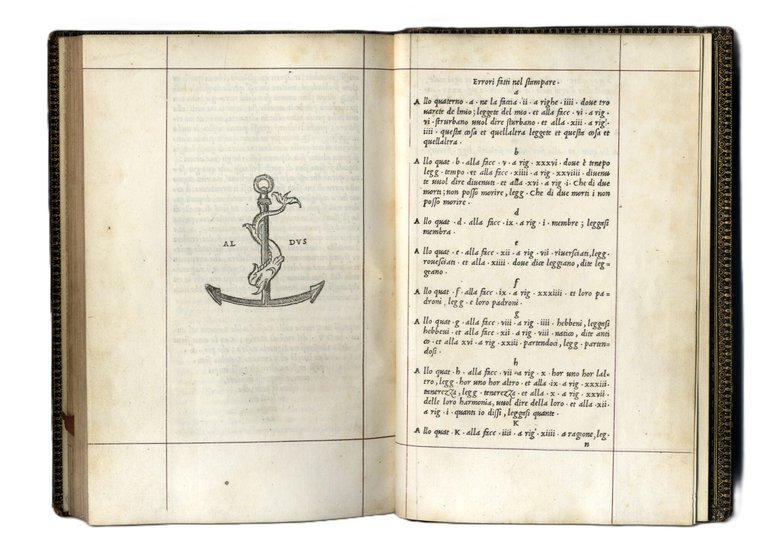 AL DVS
Errori fatti nel stampare ·
a
Allo quaterno · a · ne la faccia · ii · a righe · iiii · doue tro
uarete de lmio; leggete del mio · et alla facc · vi · a rig ·
vi · strurbano uuol dire sturbano · et alla · xiii · a rig ·
iiii · questa cosa et quellaltra leggete et questa cosa et
quellaltra ·
b
Allo quat · b · alla facc · v · a rig · xxxvi · doue è tenepo
legg · tempo · et alla facc · xiiii · a rig · xxviiii · diuenu
te uuol dire diuenuti · et alla · xvi · a rig · i · Che di due
morti; non posso morire, legg · Che di due morti i non
posso morire ·
d
Allo quat · d · alla facc · ix · a rig · i · membre; leggesi
membra ·
e
Allo quat · e · alla facc · xii · a rig · vii · riuersciati, legg ·
rouesciati · et alla · xiiii · doue dice leggiano, dite leg=
geano ·
f
Allo quat · f · alla facc · ix · a rig · xxxiiii · et loro pa=
droni, legg · e loro padroni ·
g
Allo quat · g · alla facc · viii · a rig · iiii · hebbeni, leggesi
hebbeni · et alla facc · xii · a rig · viii · natico, dite anti
co · et alla xvi · a rig · xxiii · partendoci, legg · parten=
dosi ·
h
Allo quat · h · alla facc · vii · a rig · x · hor uno hor lal=
tro, legg · hor uno hor altro · et alla · ix · a rig · xxxiii ·
tenerezza, legg · tenerezza · et alla · x · a rig · xxvii ·
delle loro harmonia, uuol dire della loro · et alla · xii ·
a rig · i · quanti io dissi, leggesi quante ·
K
Allo quat · K · alla facc · iiii · a rig · xiiii · a ragione, leg ·
n